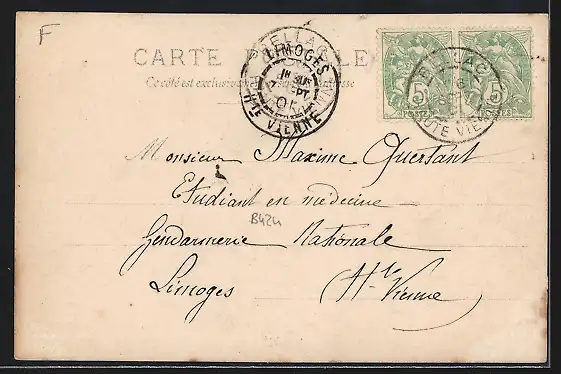 F
CARTE POSTALE
Ce côté est exclusivement adresse
LIMOGES
7 SEPT
05
Hte VIENNE
BELLAC
HTE VIENNE
5
POSTES
5
POSTES
Monsieur Maxime Quersant
Etudiant en médecine
B424
Gendarmerie Nationale
Limoges Hte Vienne